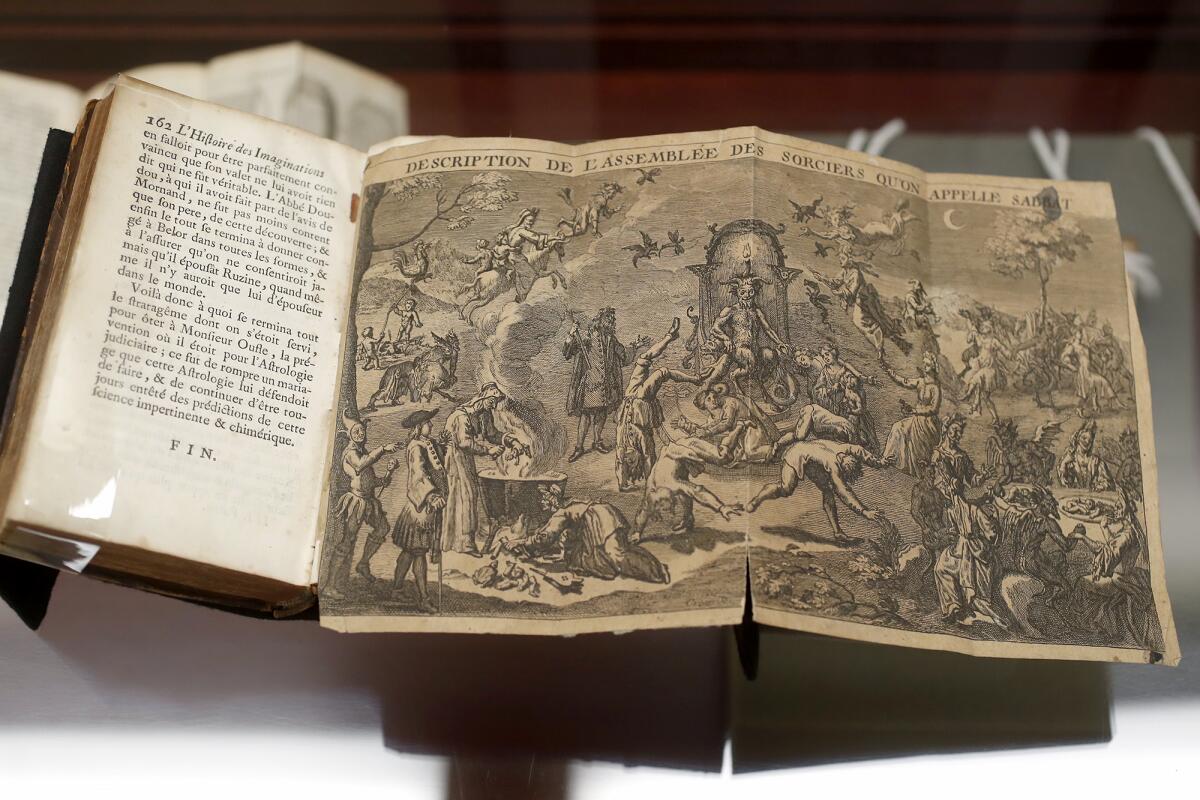 162 L'Hiſtoire des Imaginations
en falloit pour être parfaitement con-
vaincu que ſon valet ne lui avoit rien
dit qui ne fut véritable. L'Abbé Dou-
dou, à qui il avoit fait part de l'avis de
Mornand, ne fut pas moins content
que ſon pere, de cette découverte; &
enfin le tout ſe termina à donner con-
gé à Belor dans toutes les formes, &
à l'aſſurer qu'on ne conſentiroit ja-
mais qu'il épouſât Ruzine, quand mê-
me il n'y auroit que lui d'épouſeur
dans le monde.
Voilà donc à quoi ſe termina tout
le ſtratagême dont on s'étoit ſervi,
pour ôter à Monſieur Oufle, la pré-
vention où il étoit pour l'Aſtrologie
judiciaire; ce fut de rompre un maria-
ge que cette Aſtrologie lui défendoit
de faire, & de continuer d'être tou-
jours entêté des prédictions de cette
ſcience impertinente & chimérique.
FIN.
DESCRIPTION DE L'ASSEMBLÉE DES SORCIERS QU'ON APPELLE SABBAT